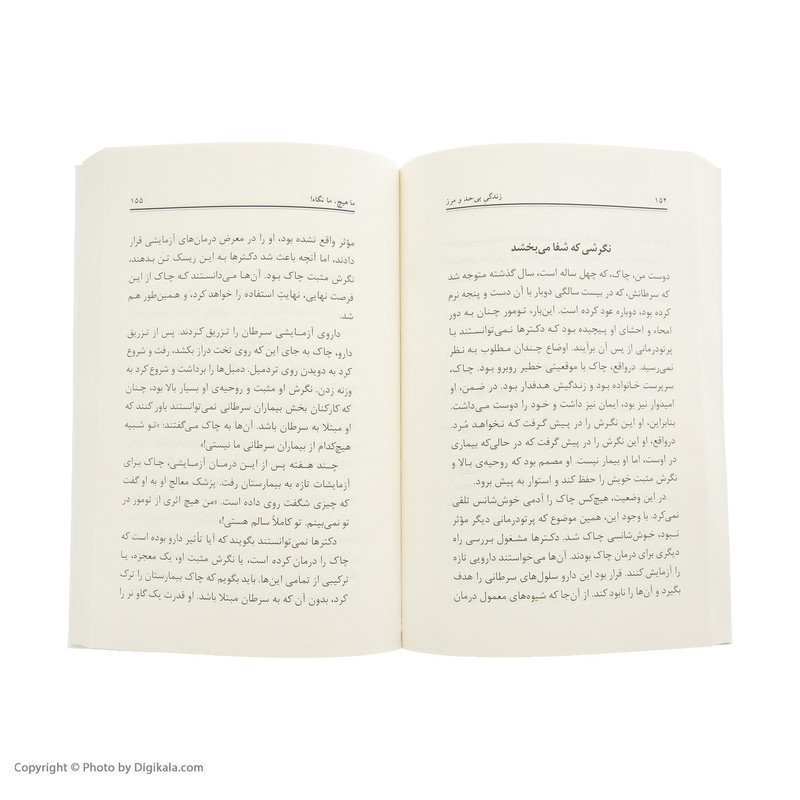 ۱۵۴
زندگی بی‌حد و مرز
نگرشی که شفا می‌بخشد
دوست من، چاک، که چهل ساله است، سال گذشته متوجه شد
که سرطانش، که در بیست سالگی دوبار با آن دست و پنجه نرم
کرده بود، دوباره عود کرده است. این‌بار، تومور چنان به دور
امحاء و احشای او پیچیده بود که دکترها نمی‌توانستند با
پرتودرمانی از پس آن برآیند. اوضاع چندان مطلوب به نظر
نمی‌رسید. درواقع، چاک با موقعیتی خطیر روبرو بود. چاک،
سرپرست خانواده بود و زندگیش هدفدار بود. در ضمن، او
امیدوار نیز بود، ایمان نیز داشت و خود را دوست می‌داشت.
بنابراین، او این نگرش را در پیش گرفت که نخواهد مُرد.
درواقع، او این نگرش را در پیش گرفت که در حالی‌که بیماری
در اوست، اما او بیمار نیست. او مصمم بود که روحیه‌ی بالا و
نگرش مثبت خویش را حفظ کند و استوار به پیش برود.
در این وضعیت، هیچ‌کس چاک را آدمی خوش‌شانس تلقی
نمی‌کرد. با وجود این، همین موضوع که پرتودرمانی دیگر مؤثر
نبود، خوش‌شانسی چاک شد. دکترها مشغول بررسی راه
دیگری برای درمان چاک بودند. آن‌ها می‌خواستند دارویی تازه
را آزمایش کنند. قرار بود این دارو سلول‌های سرطانی را هدف
بگیرد و آن‌ها را نابود کند. از آن‌جا که شیوه‌های معمول درمان
ما هیچ، ما نگاه!
۱۵۵
مؤثر واقع نشده بود، او را در معرض درمان‌های آزمایشی قرار
دادند، اما آنچه باعث شد دکترها به این ریسک تن بدهند،
نگرش مثبت چاک بود. آن‌ها می‌دانستند که چاک از این
فرصت نهایی، نهایتِ استفاده را خواهد کرد، و همین‌طور هم
شد.
داروی آزمایشی سرطان را تزریق کردند. پس از تزریق
دارو، چاک به جای این که روی تخت دراز بکشد، رفت و شروع
کرد به دویدن روی تردمیل. دمبل‌ها را برداشت و شروع کرد به
وزنه زدن. نگرش او مثبت و روحیه‌ی او بسیار بالا بود، چنان
که کارکنان بخش بیماران سرطانی نمی‌توانستند باور کنند که
او مبتلا به سرطان باشد. آن‌ها به چاک می‌گفتند: «تو شبیه
هیچ‌کدام از بیماران سرطانی ما نیستی!»
چند هفته پس از این درمان آزمایشی، چاک برای
آزمایشات تازه به بیمارستان رفت. پزشک معالج او به او گفت
که چیزی شگفت روی داده است. «من هیچ اثری از تومور در
تو نمی‌بینم. تو کاملاً سالم هستی!»
دکترها نمی‌توانستند بگویند که آیا تأثیر دارو بوده است که
چاک را درمان کرده است، یا نگرش مثبت او، یک معجزه، یا
ترکیبی از تمامی این‌ها. باید بگویم که چاک بیمارستان را ترک
کرد، بدون آن که به سرطان مبتلا باشد. او قدرت یک گاو نر را
Copyright © Photo by Digikala.com